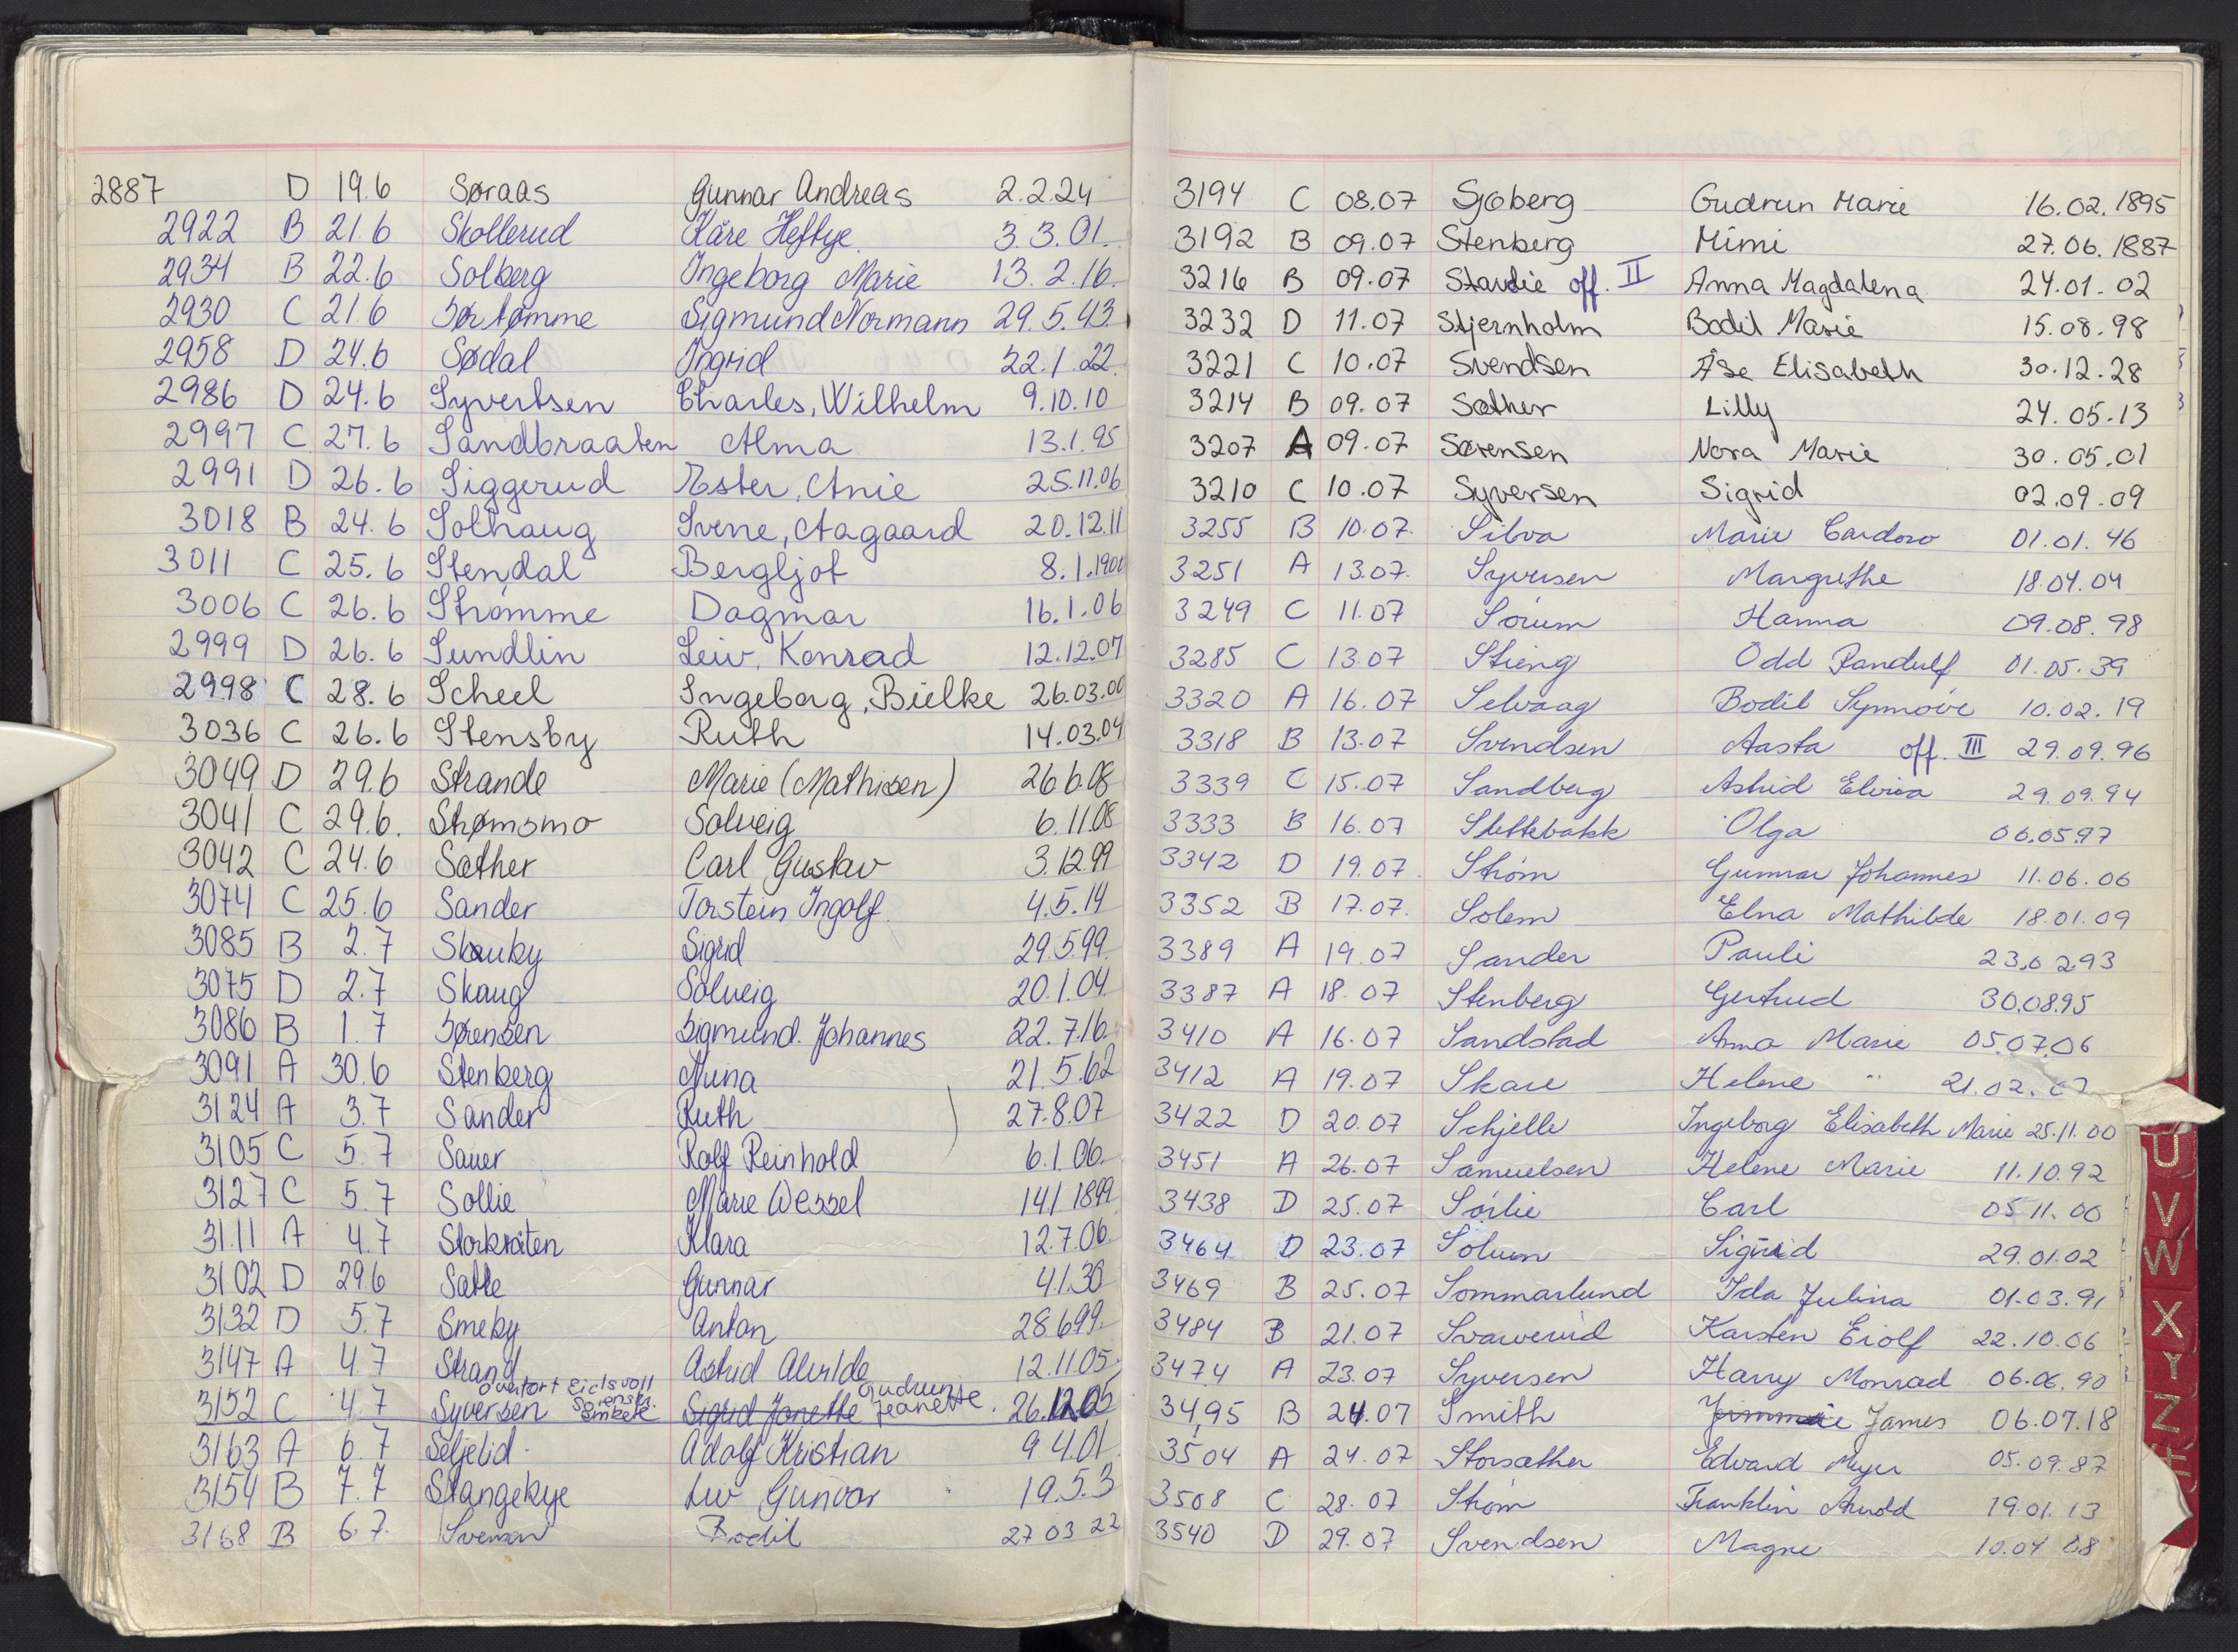 2887 D 19.6 Søraas Gunnar Andreas 2.2.24
2922 B 21.6 Skollerud Kåre Heftye 3.3.01.
2934 B 22.6 Solberg Ingeborg Marie 13.2.16.
2930 C 21.6 Sørtømme Sigmund Normann 29.5.43.
2958 D 24.6 Sødal Ingrid 22.1.22.
2986 D 24.6 Syvertsen Charles, Wilhelm 9.10.10
2997 C 27.6 Sandbraaten Alma 13.1.95
2991 D 26.6 Siggerud Ester, Anie 25.11.06
3018 B 24.6 Solhaug Svene, Aagaard 20.12.11
3011 C 25.6 Stendal Bergljot 8.1.1900
3006 C 26.6 Strømme Dagmar 16.1.06
2999 D 26.6 Sundlin Leiv, Konrad 12.12.07
2998 C 28.6 Scheel Ingeborg, Bielke 26.03.00
3036 C 26.6 Stensby Ruth 14.03.04
3049 D 29.6 Strande Marie (Mathisen) 26.6.08
3041 C 29.6. Strømsmo Solveig 6.11.08
3042 C 24.6 Sæther Carl Gustav 3.12.99
3074 C 25.6 Sander Torstein Ingolf 4.5.14
3085 B 2.7 Skauby Sigrid 29.5.99.
3075 D 2.7 Skaug Solveig 20.1.04.
3086 B 1.7 Sørensen Sigmund. Johannes 22.7.16.
3091 A 30.6 Stenberg Nina 21.5.62
3124 A 3.7 Sander Ruth 27.8.07
3105 C 5.7 Sauer Rolf Reinhold 6.1.06.
3127 C 5.7 Sollie Marie Wessel 14.1 1899
3111 A 4.7 Storkråten Klara 12.7.06.
3102 D 29.6 Sætle Gunnar 4.1.30
3132 D 5.7 Smeby Anton 28.6.99.
3147 A 4.7 Strand Astrid Alvilde 12.11.05.
overført Eidsvoll Gudrunje
3152 C 4.7 Syversen Sørensen Smkete Sigrid Janette Jeanette. 26.12.05
3163 A 6.7 Seljelid Adolf Kristian 9 4.01.
3154 B 7.7 Stangebye Liv Gunvor 19.5.3
3168 B 6.7. Bodil 27 03 22
3194 C 08.07 Sjøberg Gudrun Marie 16.02.1895
3192 B 09.07 Stenberg Mimi 27.06.1887
3216 B 09.07 Stavdie off. II Anna Magdalena 24.01.02
3232 D 11.07 Stjernholm Bodil Marie 15.08.98
3221 C 10.07 Svendsen Åse Elisabeth 30.12.28
3214 B 09.07 Sæther Lilly 24.05.13
3207 A 09.07 Sørensen Nora Marie 30.05.01
3210 C 10.07 Syversen Sigrid 02.09.09
3255 B 10.07. Silva Marie Cardoso 01.01.46
3251 A 13.07. Syversen Margrethe 18.04.04
3249 C 11.07 Sørum Hanna 09.08.98
3285 C 13.07 Stieng Odd Randulf 01.05.39
3320 A 16.07 Selvaag Bodil Synnøve 10.02.19
3318 B 13.07 Svendsen Aasta off. III 29.09.96
3339 C 15.07 Sandberg Astrid Elvira 29.09.94
3333 B 16.07 Slettebakk Olga 06.05.97
3342 D 19.07. Strøm Gunnar Johannes 11.06.06
3352 B 17.07. Solem Elna Mathilde 18.01.09
3389 A 19.07 Sander Pauli 23.02.93
3387 A 18.07 Stenberg Gertrud 30.08.95
3410 A 16.07 Sandstad Anna Marie 05.07.06
3412 A 19.07 Skare Helene " 21.02.
3422 D 20.07 Schjelle Ingeborg Elisabeth Marie 25.11.00
3451 A 26.07 Samuelsen Helene Marie 11.10.92
3438 D 25.07 Sørlie Carl 05 11.00
3464 D 23.07 Solum Sigrid 29.01.02
3469 B 25.07 Sommarlund Ida Julina 01.03.91
3484 B 21.07 Svarverud Karsten Eiolf 22.10.06
3474 A 23.07 Syversen Harry Monrad 06.06.90
3495 B 24.07 Smith Jimmie James 06.07.18
3504 A 24.07 Storsæther Edvard Meyer 05.09.87
3508 C 28.07 Strøm Franklin Arnold 19.01.13
3540 D 29.07 Svendsen Magne 10.04 08
U
V
W
X
Y
Z